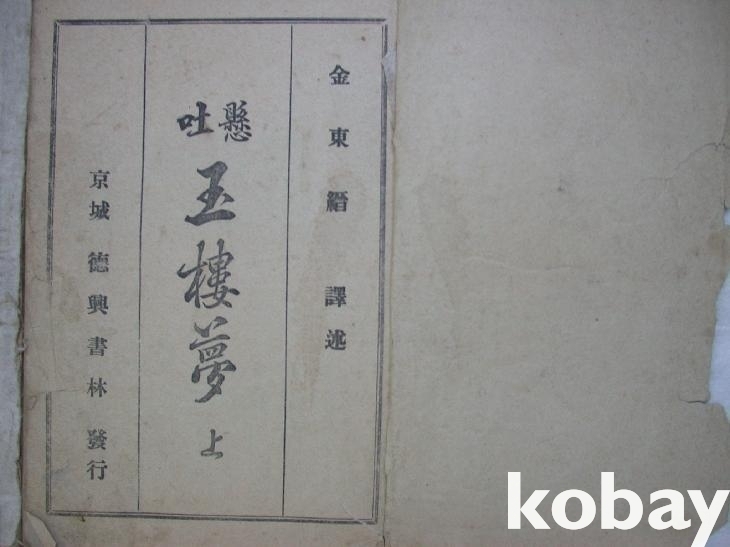 金東縉 譯述
懸吐
玉樓夢 上
京城 德興書林 發行
kobay